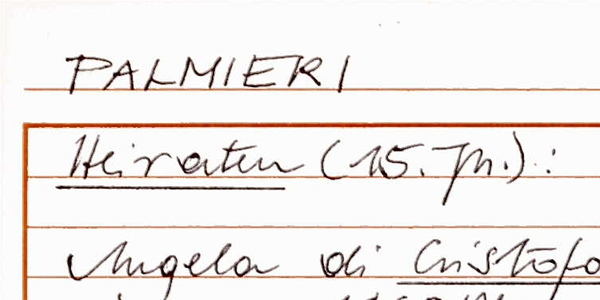 PALMIERI
Heiraten (15. Jh.):
Angela di Cristofo